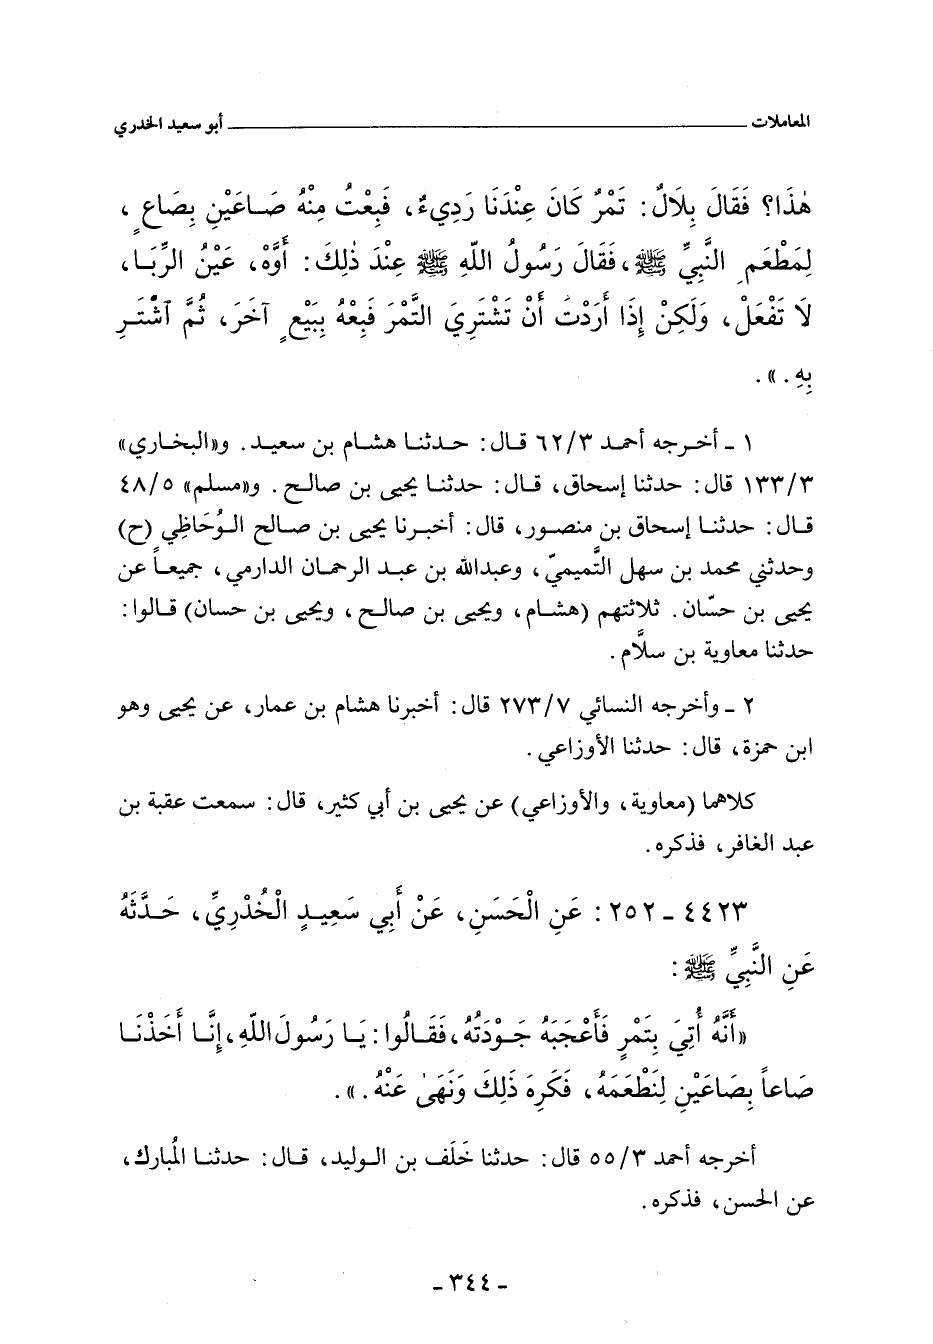 المعاملات ــــــــــــــــــــــــــــــــ أبو سعيد الخدري
هٰذَا؟ فَقَالَ بِلَالٌ: تَمْرٌ كَانَ عِنْدَنَا رَدِيءٌ، فَبِعْتُ مِنْهُ صَاعَيْنِ بِصَاعٍ،
لِمَطْعَمِ النَّبِيِّ ﷺ، فَقَالَ رَسُولُ اللّهِ ﷺ عِنْدَ ذٰلِكَ: أَوَّهْ، عَيْنُ الرِّبَا،
لَا تَفْعَلْ، وَلَكِنْ إِذَا أَرَدْتَ أَنْ تَشْتَرِيَ التَّمْرَ فَبِعْهُ بِبَيْعٍ آخَرَ، ثُمَّ ٱشْتَرِ
بِهِ.».
١ ـ أخرجه أحمد ٦٢/٣ قال: حدثنا هشام بن سعيد. و«البخاري»
١٣٣/٣ قال: حدثنا إسحاق، قال: حدثنا يحيى بن صالح. و«مسلم» ٤٨/٥
قال: حدثنا إسحاق بن منصور، قال: أخبرنا يحيى بن صالح الوُحَاظِي (ح)
وحدثني محمد بن سهل التَّميميّ، وعبدالله بن عبد الرحمان الدارمي، جميعاً عن
يحيى بن حسّان. ثلاثتهم (هشام، ويحيى بن صالح، ويحيى بن حسان) قالوا:
حدثنا معاوية بن سلاَّم.
٢ ـ وأخرجه النسائي ٢٧٣/٧ قال: أخبرنا هشام بن عمار، عن يحيى وهو
ابن حمزة، قال: حدثنا الأوزاعي.
كلاهما (معاوية، والأوزاعي) عن يحيى بن أبي كثير، قال: سمعت عقبة بن
عبد الغافر، فذكره.
٤٤٢٣ ـ ٢٥٢: عَنِ الْحَسَنِ، عَنْ أَبِي سَعِيدٍ الْخُدْرِيِّ، حَدَّثَهُ
عَنِ النَّبِيِّ ﷺ:
«أَنَّهُ أُتِيَ بِتَمْرٍ فَأَعْجَبَهُ جَوْدَتُهُ، فَقَالُوا: يَا رَسُولَ اللّهِ، إِنَّا أَخَذْنَا
صَاعاً بِصَاعَيْنِ لِنَطْعَمَهُ، فَكَرِهَ ذَلِكَ وَنَهَىٰ عَنْهُ.».
أخرجه أحمد ٥٥/٣ قال: حدثنا خَلَف بن الوليد، قال: حدثنا المُبارك،
عن الحسن، فذكره.
ـ ٣٤٤ ـ